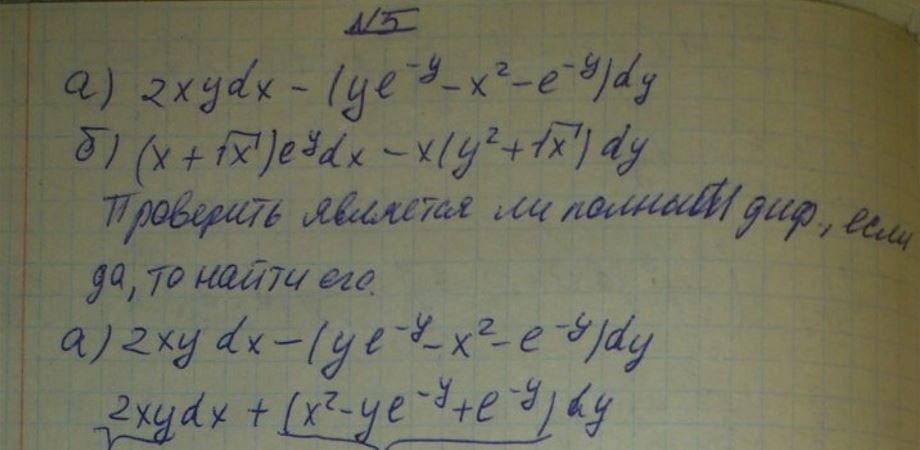 №5
а) 2xydx - (ye^-y - x² - e^-y)dy
б) (x + √x)e^y dx - x(y² + √x) dy
Проверить является ли полный диф., если
да, то найти его.
а) 2xy dx - (ye^-y - x² - e^-y)dy
2xydx + (x² - ye^-y + e^-y) dy